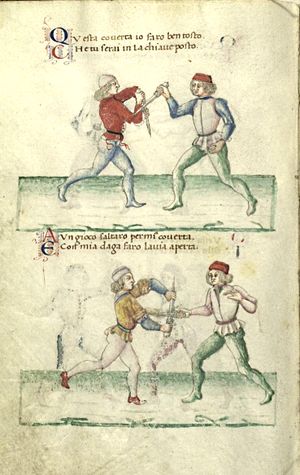 Questa coverta io faro ben tosto.
Che tu serai in la chiave posto.
A un gioco saltaro per mi coverta.
E cum mia daga faro la via aperta.